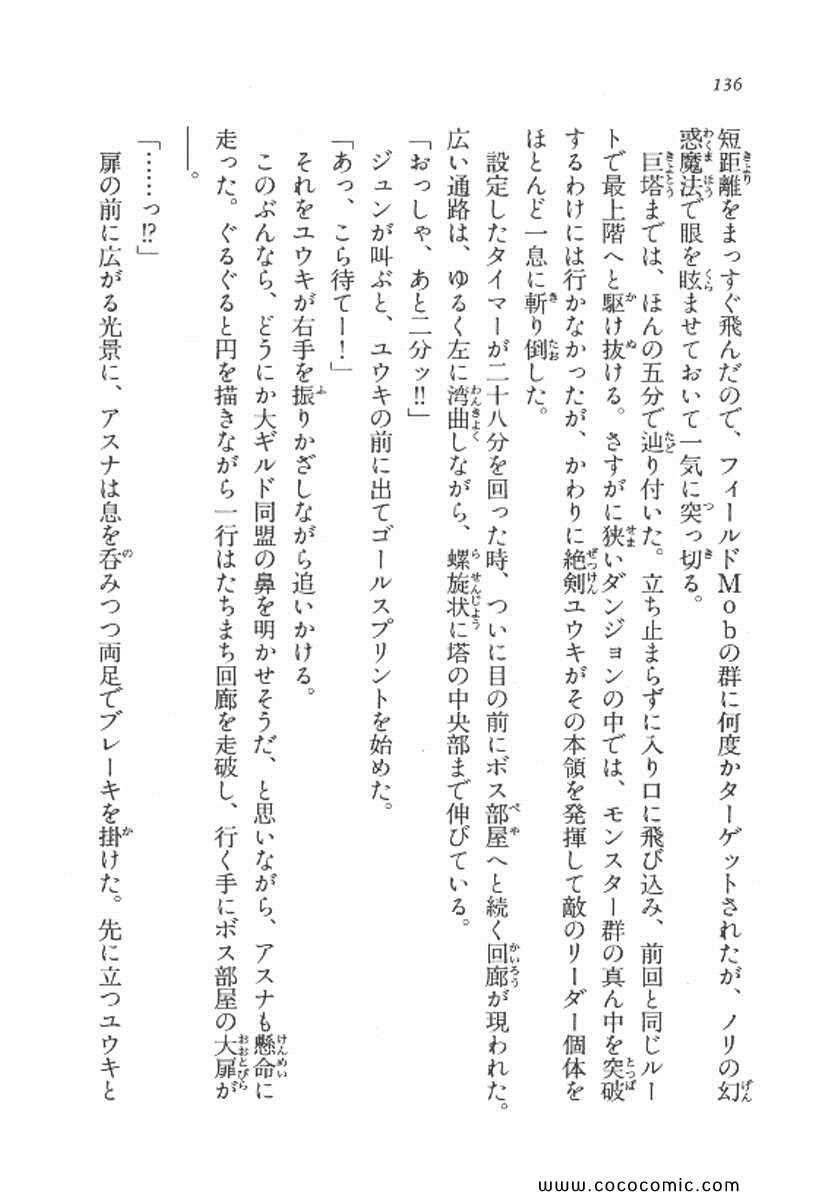 136
短距離をまっすぐ飛んだので、フィールドMobの群に何度かターゲットされたが、ノリの幻
惑魔法で眼を眩ませておいて一気に突っ切る。
巨塔までは、ほんの五分で辿り付いた。立ち止まらずに入り口に飛び込み、前回と同じルー
トで最上階へと駆け抜ける。さすがに狭いダンジョンの中では、モンスター群の真ん中を突破
するわけには行かなかったが、かわりに絶剣ユウキがその本領を発揮して敵のリーダー個体を
ほとんど一息に斬り倒した。
設定したタイマーが二十八分を回った時、ついに目の前にボス部屋へと続く回廊が現われた。
広い通路は、ゆるく左に湾曲しながら、螺旋状に塔の中央部まで伸びている。
「おっしゃ、あと二分ッ!!」
ジュンが叫ぶと、ユウキの前に出てゴールスプリントを始めた。
「あっ、こら待てー！」
それをユウキが右手を振りかざしながら追いかける。
このぶんなら、どうにか大ギルド同盟の鼻を明かせそうだ、と思いながら、アスナも懸命に
走った。ぐるぐると円を描きながら一行はたちまち回廊を走破し、行く手にボス部屋の大扉が
――。
「……っ!?」
扉の前に広がる光景に、アスナは息を呑みつつ両足でブレーキを掛けた。先に立つユウキと
www.cococomic.com